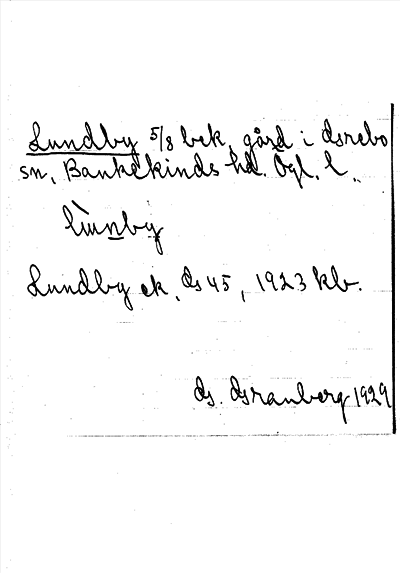 Lundby 5/8 bek. gård i Grebo
sn, Bankekinds hd. Ögl. l.
lùnby
Lundby ek. G 45, 1923 kb.
G. Granberg 1929